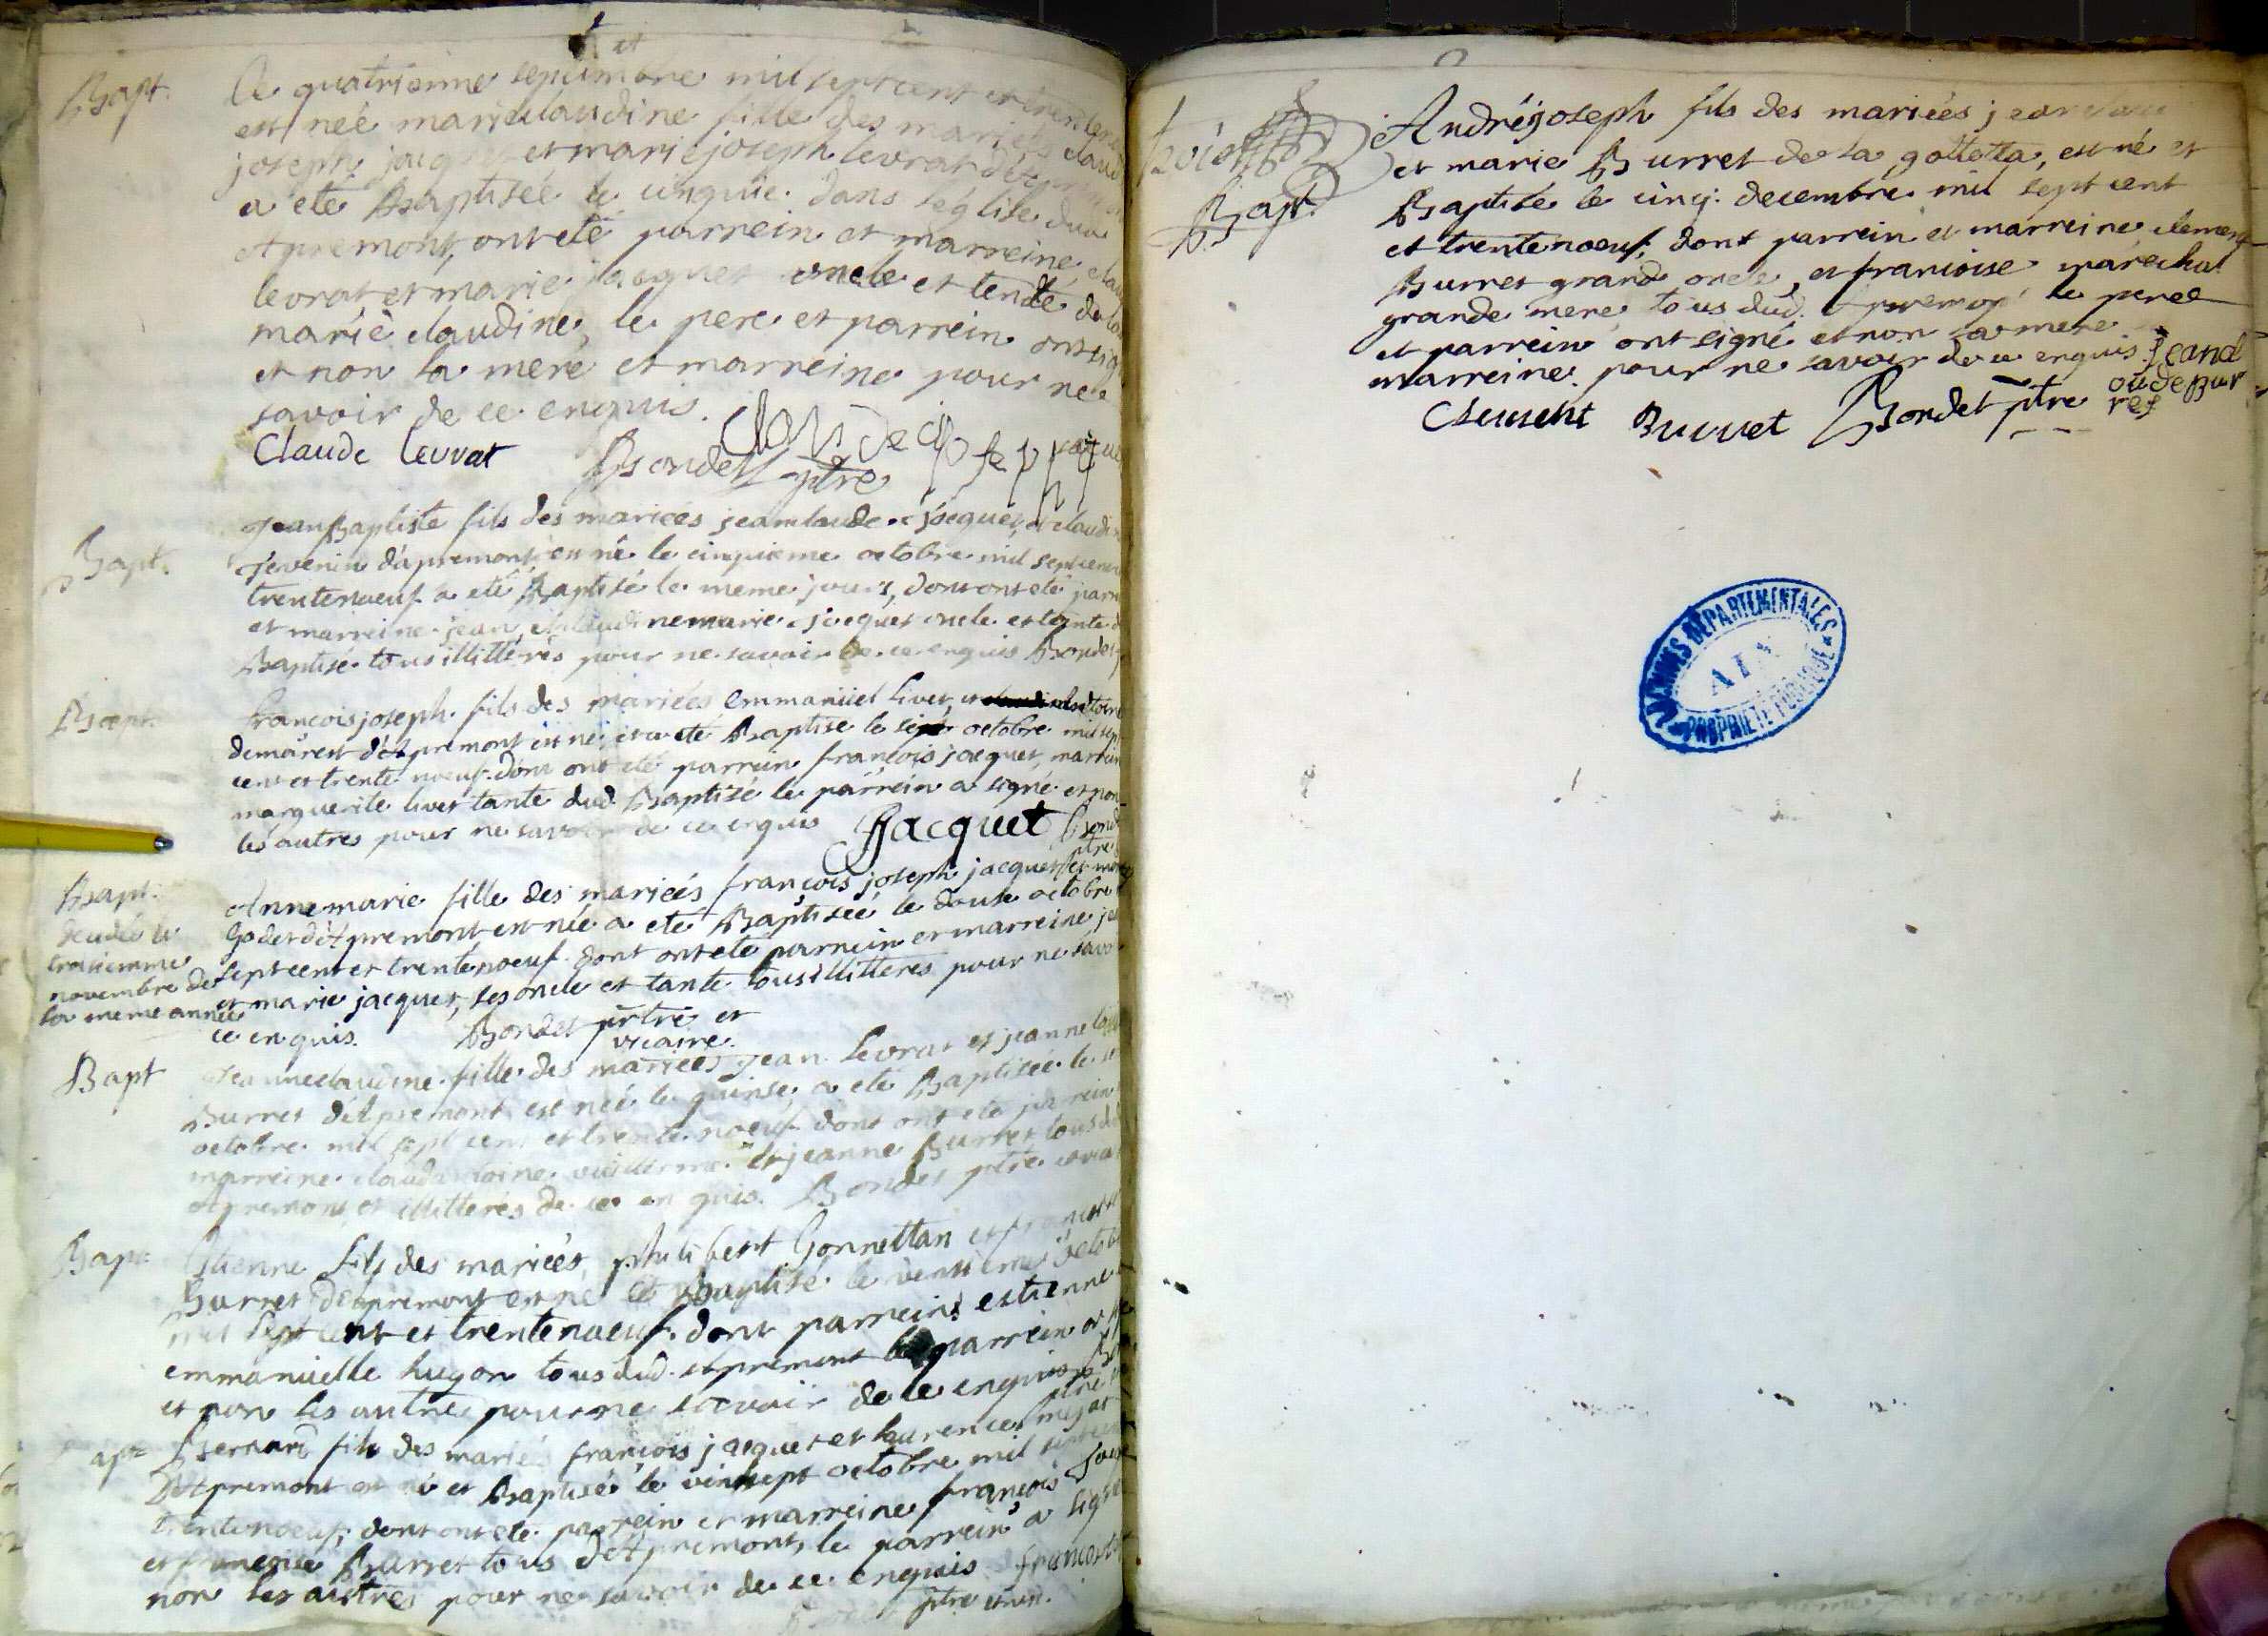 Bapt.
Le quatrieme septembre mil sept cent et trente
est neé marieclaudine fille des mariées claud
joseph jacquet et mariejoseph levrat d'Apremont
a eté Baptisée le cinquie. dans l'église dud.
Apremont, ont eté parrein et marreine clau
levrat et marie jacquet oncle et tente de la
marie claudine, le pere et parrein ont sig
et non la mere et marreine pour ne
savoir de ce enquis.
Claude levrat Bondet ptre
Bapt.
Jean Baptiste fils des mariées jeanclaude jacquet, et claudi
Tevenin d'apremont, est né le cinquieme octobre mil sept cent
trentenoeuf a eté Baptisé le meme jour, dont ont eté parr
et marreine jean, et claudinemarie jacquet oncle et tante d
Baptisé tous illitterés pour ne savoir de ce enquis Bondet
Bapt.
francoisjoseph fils des mariées Emmanüel livet, et
demarest d'Apremont est né et a eté Baptisé le sept octobre mil sept
cent et trente noeuf. dont ont eté parrein francois jacquet, marrein
marguerite livet tante dud. Baptizé le parrein a signé et non
les autres pour ne savoir de ce enquis Jacquet Bond
ptre
Bapt.
Annemarie fille des mariées françois joseph jacquet et ma
Godet d'Apremont est née a eté Baptiseé le douse octobre
sept cent et trentenoeuf. dont ont eté parrein et marreine je
et marie jacquet, ses oncle et tante tous illitteres pour ne savo
ce enquis. Bondet prtre et
vicaire.
decedée le
troisiemme
novembre de
la meme année
Bapt
Jeanneclaudine fille des mariées Jean Levrat et jeanne
Burret d'Apremont est neé le quinse, a eté Baptisée le
octobre mil sept cent et trente noeuf dont ont eté parrein
marreine claude vuillerme et jeanne Burret tous d
Apremont et illitterés de ce enquis. Bondet ptre
Bapt
Etienne fils des mariées, philibert Gonnettan et
Burret d'Apremont est né et Baptisé le octob
mil sept cent et trentenoeuf. dont parrein estienne
emmanüelle hugon tous dud. Apremont le parrein a
et non les autres pour ne savoir de ce enquis
ptre
apt
Bernard fils des mariés françois jacquet et laurence
D'Apremont est né et Baptisé le vintsept octobre mil sept cen
trentenoeuf; dont ont eté parrein et marreine francois
et francoise Burret tous d'Apremont, le parrein a signé
non les autres pour ne savoir de ce enquis
ptre et vic.
Bapt.
Andréjoseph fils des mariées jean
et marie Burret de la gottetta, est né et
Baptisé le cinq. decembre mil sept cent
et trentenoeuf, dont parrein et marreine clement
Burret grand oncle, et francoise marechal
grande mere tous dud. Apremont le peree
et parrein ont signé et non la mere
marreine. pour ne savoir de ce enquis. Jeand
oudebur
ret
Clement Burret Bondet ptre
ARCHIVES DÉPARTEMENTALES
AIN
PROPRIÉTÉ PUBLIQUE